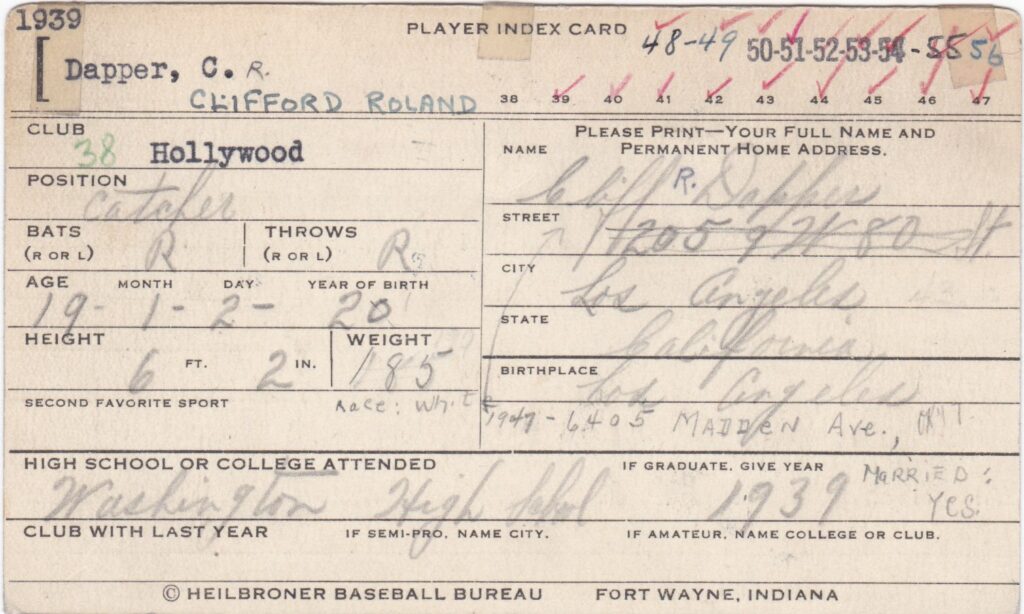 1939
PLAYER INDEX CARD
48-49 50-51-52-53-54-55 56
Dapper, C. R.
CLIFFORD ROLAND
38 39 40 41 42 43 44 45 46 47
CLUB
38 Hollywood
POSITION
Catcher
BATS
(R OR L) R
THROWS
(R OR L) R
AGE MONTH DAY YEAR OF BIRTH
19- 1- 2- 20
HEIGHT WEIGHT
6 FT. 2 IN. 185
SECOND FAVORITE SPORT
Race: White
PLEASE PRINT—YOUR FULL NAME AND
PERMANENT HOME ADDRESS.
NAME
Cliff R. Dapper
STREET
1205 W 80 St.
CITY
Los Angeles
STATE
California
BIRTHPLACE
Los Angeles
1947-6405 MADDEN Ave.,
HIGH SCHOOL OR COLLEGE ATTENDED IF GRADUATE, GIVE YEAR
Washington High School 1939
MARRIED:
YES.
CLUB WITH LAST YEAR IF SEMI-PRO, NAME CITY. IF AMATEUR, NAME COLLEGE OR CLUB.
© HEILBRONER BASEBALL BUREAU FORT WAYNE, INDIANA